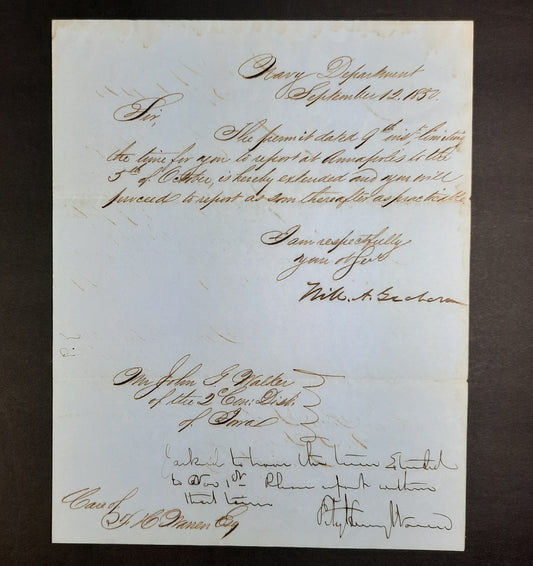 Navy Department
September 12, 1850.
Sir,
The permit dated 9th inst. limiting
the time for you to report at Annapolis to the
5th of October, is hereby extended and you will
proceed to report as soon thereafter as practicable
I am respectfully
your ob Serv
Will. A. Graham
Mr John G Walker
of the 2d Con: Dist.
of Iowa
I asked to have the time Extended
to Nov 1st. Please report within
that time
Fitz Henry Warren
Care of
F H Warren Esq